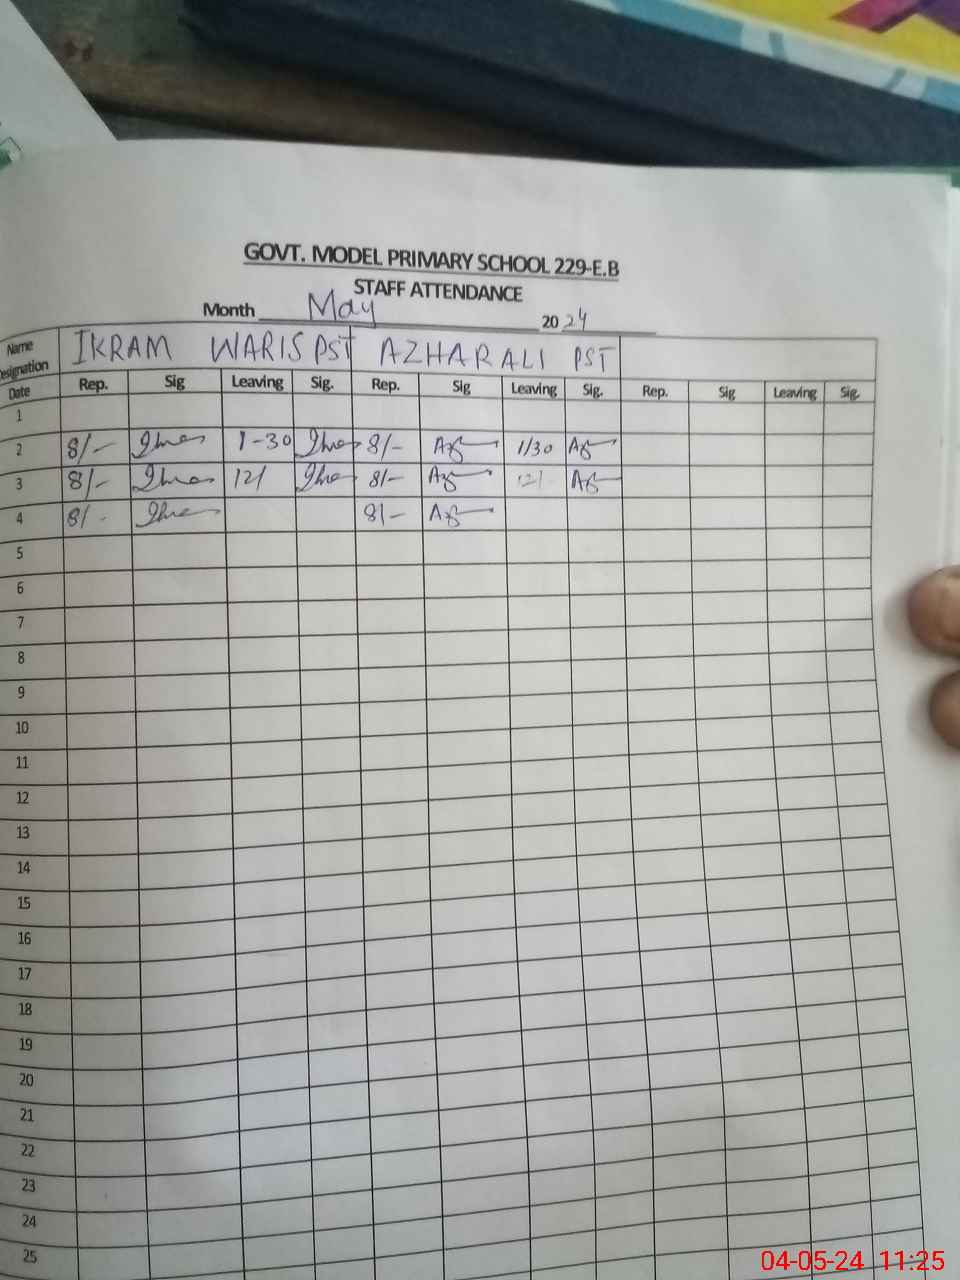 GOVT. MODEL PRIMARY SCHOOL 229-E.B
STAFF ATTENDANCE
Month May 2024
Name IKRAM WARIS PST AZHAR ALI PST
esignation
Date Rep. Sig Leaving Sig. Rep. Sig Leaving Sig. Rep. Sig Leaving Sig.
1
2 8/- 1-30 8/- 1/30
3 8/- 12/ 8/- 12/-
4 8/- 8/-
5
6
7
8
9
10
11
12
13
14
15
16
17
18
19
20
21
22
23
24
25
04-05-24 11:25